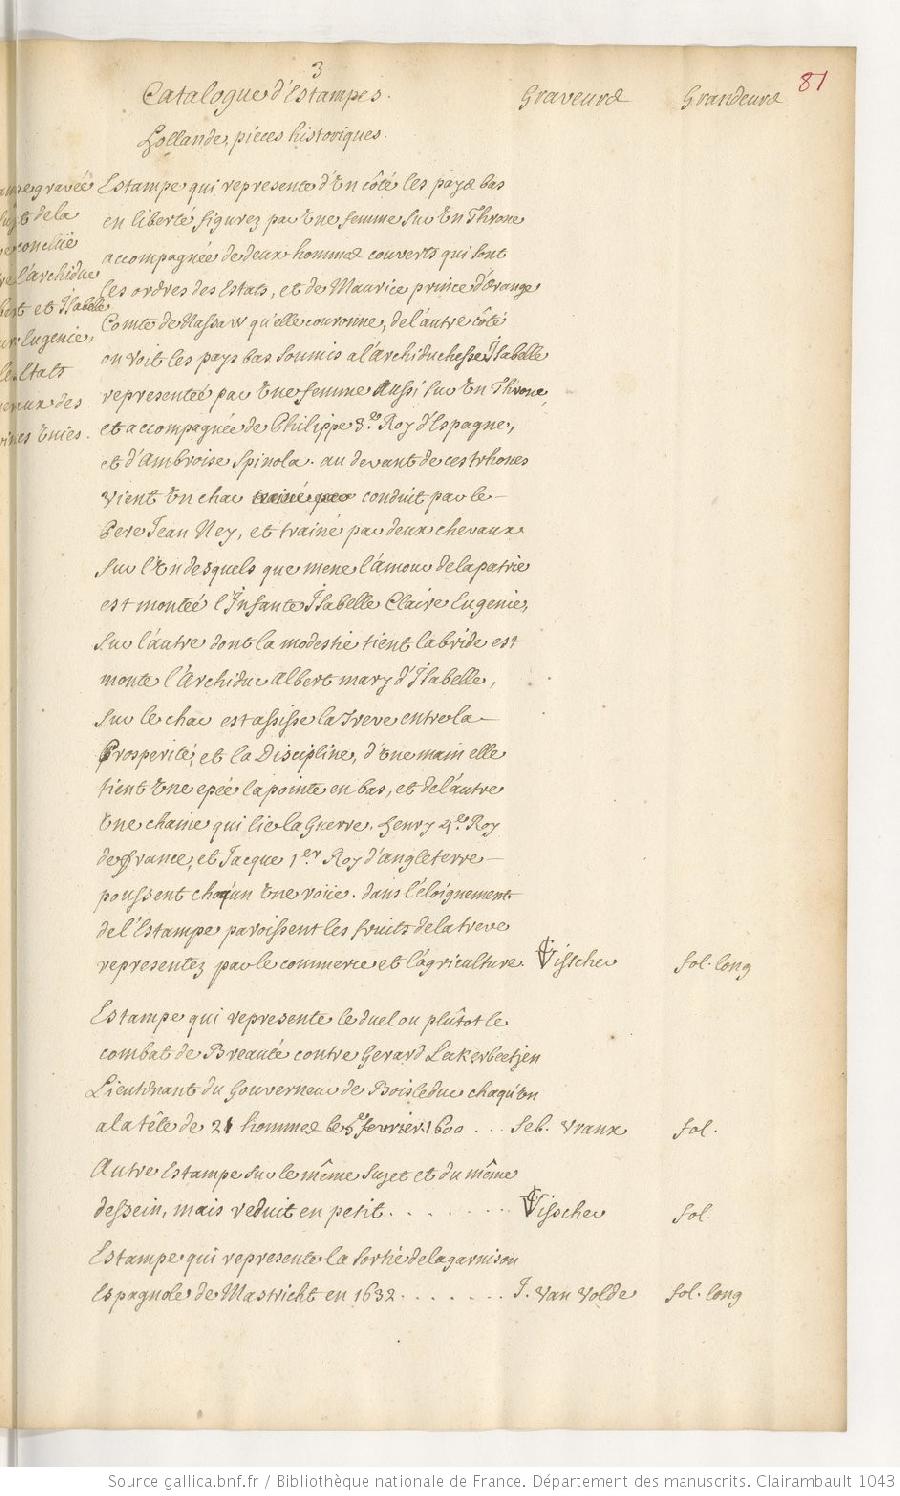 3
81
Catalogue d'Estampes. Graveurs Grandeurs
Hollande, pieces historiques.
gravée
de la
conclüe
l'archiduc
et Isabelle
Eugenie,
Estats
des
unies.
Estampe qui represente d'un côté les pays bas
en liberté figurez par une femme sur un Throne
accompagnée de deux hommes couverts qui sont
les ordres des Estats, et de Maurice prince d'Orange
Comte de Nassaw qu'elle couronne, de l'autre côté
on voit les pays bas soumis a l'archiduchesse Isabelle
representée par une femme aussi sur un Throne,
et accompagnée de Philippe 3.e Roy d'Espagne,
et d'Ambroise Spinola. au devant de ces trhones
vient un char trainé par conduit par le
Pere Jean Ney, et trainé par deux chevaux
sur l'un desquels que mene l'amour de la patrie
est montée l'Infante Isabelle Claire Eugenie,
sur l'autre dont la modestie tient la bride est
monte l'Archiduc Albert mary d'Isabelle,
sur le char est assise la Treve entre la
Prosperité, et la Discipline, d'une main elle
tient une epée la pointe en bas, et de l'autre
une chaine qui lie la Guerre. Henry 4.e Roy
de france, et Jacque 1.er Roy d'angleterre
poussent chaq'un une roüe. dans l'éloignement
de l'Estampe paroissent les fruits de la treve
representez par le commerce et l'agriculture. Visscher fol. long
Estampe qui represente le duel ou plûtot le
combat de Breauté contre Gerard Lekerbeetjen
Lieutenant du Gouverneur de Boisleduc chaq'un
a la tête de 21 hommes le 5.e fevrier 1600 ... Seb. Vranx fol.
Autre Estampe sur le même sujet et du même
dessein, mais reduit en petit. . . . . . . . Visscher fol.
Estampe qui represente la sortie de la garnison
Espagnole de Mastricht en 1632. . . . . . . J. Van Volde fol. long
Source gallica.bnf.fr / Bibliothèque nationale de France. Département des manuscrits. Clairambault 1043